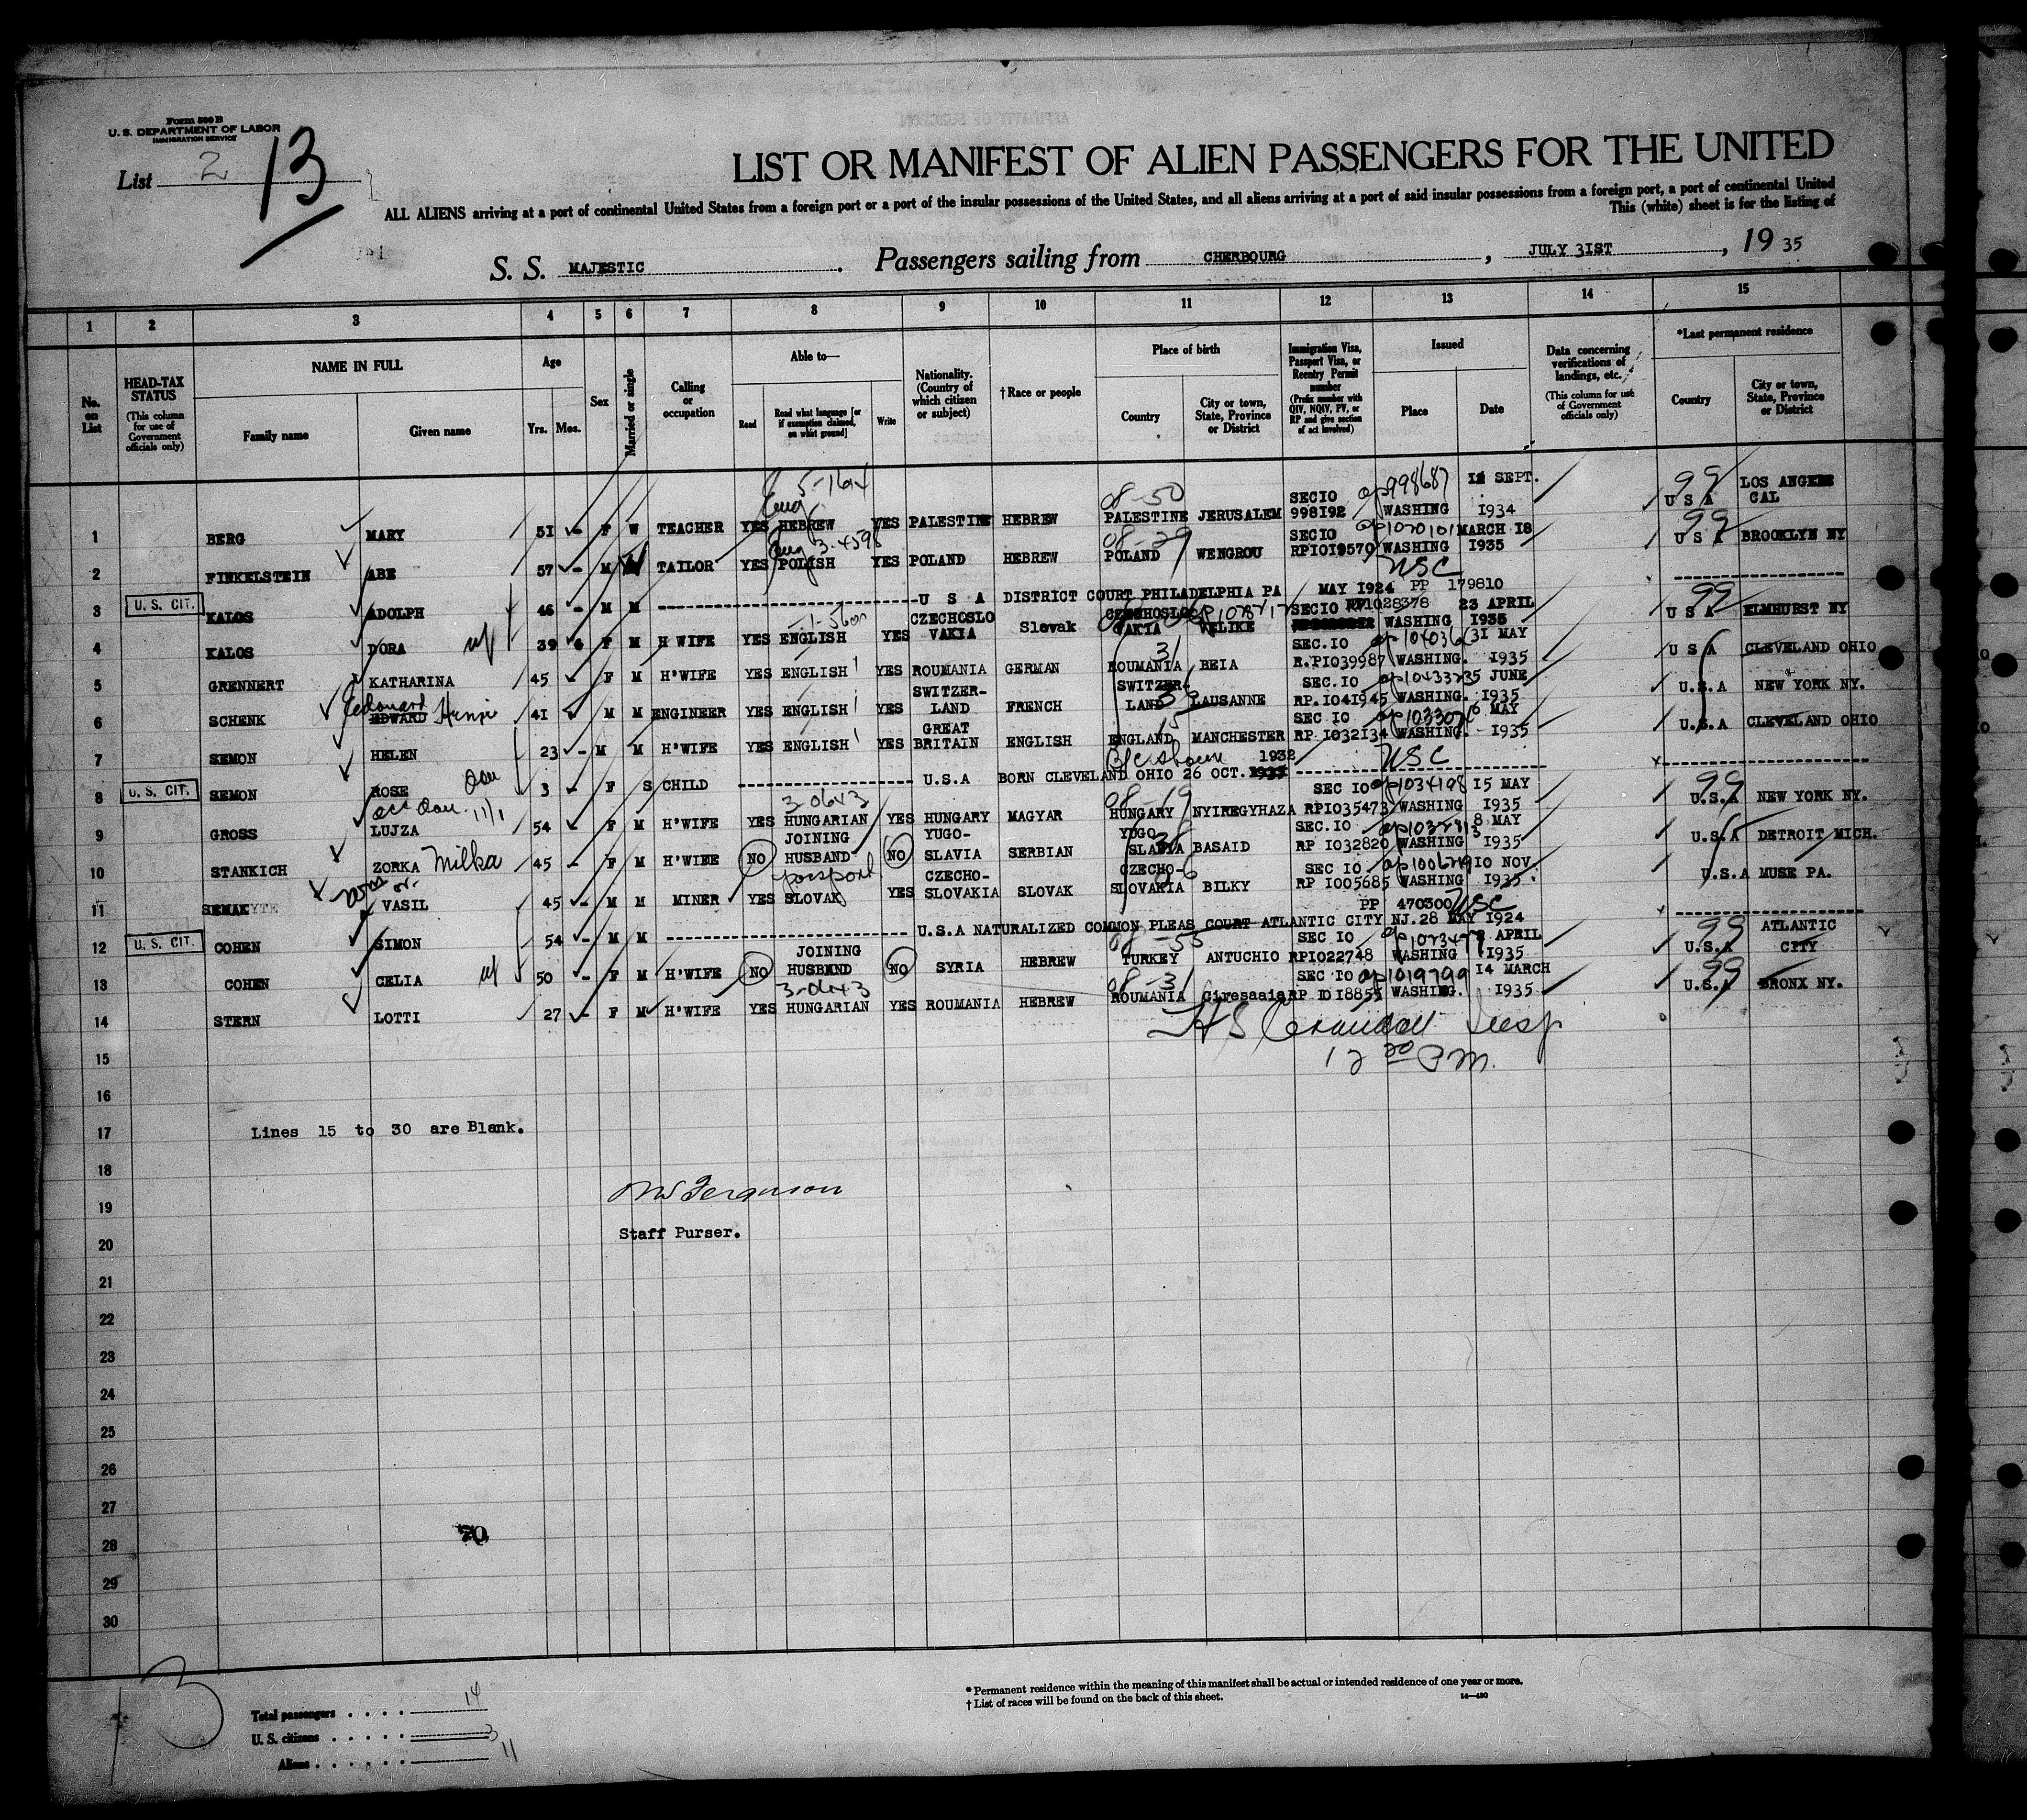 Form 500 B
U. S. DEPARTMENT OF LABOR
IMMIGRATION SERVICE
List 2 13
LIST OR MANIFEST OF ALIEN PASSENGERS FOR THE UNITED
ALL ALIENS arriving at a port of continental United States from a foreign port or a port of the insular possessions of the United States, and all aliens arriving at a port of said insular possessions from a foreign port, a port of continental United
This (white) sheet is for the listing of
S. S. MAJESTIC. Passengers sailing from CHERBOURG, JULY 31ST, 19 35
1 2 3 4 5 6 7 8 9 10 11 12 13 14 15
No. on List
HEAD-TAX STATUS (This column for use of Government officials only)
NAME IN FULL Family name Given name
Age Yrs. Mos.
Sex
Married or single
Calling or occupation
Able to— Read Read what language [or if exemption claimed, on what ground] Write
Nationality. (Country of which citizen or subject)
†Race or people
Place of birth Country City or town, State, Province or District
Immigration Visa, Passport Visa, or Reentry Permit number (Prefix number with QIV, NQIV, PV, or RP and give section of act involved)
Issued Place Date
Data concerning verifications of landings, etc. (This column for use of Government officials only)
*Last permanent residence Country City or town, State, Province or District
1 BERG MARY 51 - F W TEACHER YES Eng HEBREW YES PALESTINE HEBREW 08-50 PALESTINE JERUSALEM SECIO 998192 998687 WASHING 12 SEPT. 1934 99 U S A LOS ANGELES CAL
2 FINKELSTEIN ABE 57 - M TAILOR YES Eng POLISH YES POLAND HEBREW 08-29 POLAND WENGROU SECIO RPIO19570 1020101 WASHING MARCH 18 1935 99 U S A BROOKLYN NY
3 U. S. CIT. KALOS ADOLPH 46 - M M U S A DISTRICT COURT PHILADELPHIA PA MAY 1924 PP 179810 USC
4 KALOS DORA wf 39 6 F M H WIFE YES ENGLISH YES CZECHOSLO VAKIA Slovak CZECHOSLO VAKIA VELIKE SECIO RP1028378 WASHING 23 APRIL 1935 99 U S A ELMHURST NY
5 GRENNERT KATHARINA 45 F M H'WIFE YES ENGLISH YES ROUMANIA GERMAN 31 ROUMANIA BEIA SEC.IO R.PIO39987 WASHING. 31 MAY 1935 U S A CLEVELAND OHIO
6 SCHENK Edouard EDWARD Henri 41 M M ENGINEER YES ENGLISH YES SWITZER-LAND FRENCH SWITZER-LAND LAUSANNE SEC. IO RP. IO41945 WASHING. 5 JUNE 1935 U.S.A NEW YORK NY.
7 SEMON HELEN 23 - M M H'WIFE YES ENGLISH YES GREAT BRITAIN ENGLISH 15 ENGLAND MANCHESTER SEC IO RP IO32134 WASHING. MAY 1935 U.S.A CLEVELAND OHIO
8 U. S. CIT. SEMON ROSE Dau 3 - F S CHILD U.S.A BORN CLEVELAND OHIO 26 OCT. 1932 USC
9 GROSS LUJZA 54 F M H'WIFE YES 3-0643 HUNGARIAN YES HUNGARY MAGYAR 08-19 HUNGARY NYIREGYHAZA SEC IO RPIO35473 1034198 WASHING 15 MAY 1935 99 U.S.A NEW YORK NY.
10 STANKICH ZORKA Milka 45 - F M H'WIFE NO JOINING HUSBAND NO YUGO-SLAVIA SERBIAN YUGO SLAVIA BASAID SEC.IO RP IO32820 WASHING 8 MAY 1935 U.S.A DETROIT MICH.
11 SEMAK VASIL or 45 - M M MINER YES SLOVAK YES CZECHO-SLOVAKIA SLOVAK CZECHO-SLOVAKIA BILKY SEC IO RP IO05685 WASHING 10 NOV 1935 U.S.A MUSE PA.
12 U. S. CIT. COHEN SIMON 54 - M M U.S.A NATURALIZED COMMON PLEAS COURT ATLANTIC CITY NJ. 28 MAY 1924 PP 470300 USC
13 COHEN CELIA wf 50 - F M H'WIFE NO JOINING HUSBAND NO SYRIA HEBREW 08-55 TURKEY ANTUCHIO SEC IO RPIO22748 WASHING APRIL 1935 99 U.S.A ATLANTIC CITY
14 STERN LOTTI 27 - F M H'WIFE YES 3-0643 HUNGARIAN YES ROUMANIA HEBREW 08-31 ROUMANIA Ciresaaia SEC IO RP IO18855 1019799 WASHING. 14 MARCH 1935 99 U.S.A BRONX NY.
15
12 20 P.M.
16
17 Lines 15 to 30 are Blank.
18
19 Ferguson
20 Staff Purser.
21
22
23
24
25
26
27
28 70
29
30
Total passengers . . . . 14
U. S. citizens . . . . . 3
Aliens . . . . . . 11
* Permanent residence within the meaning of this manifest shall be actual or intended residence of one year or more.
† List of races will be found on the back of this sheet.
14—480